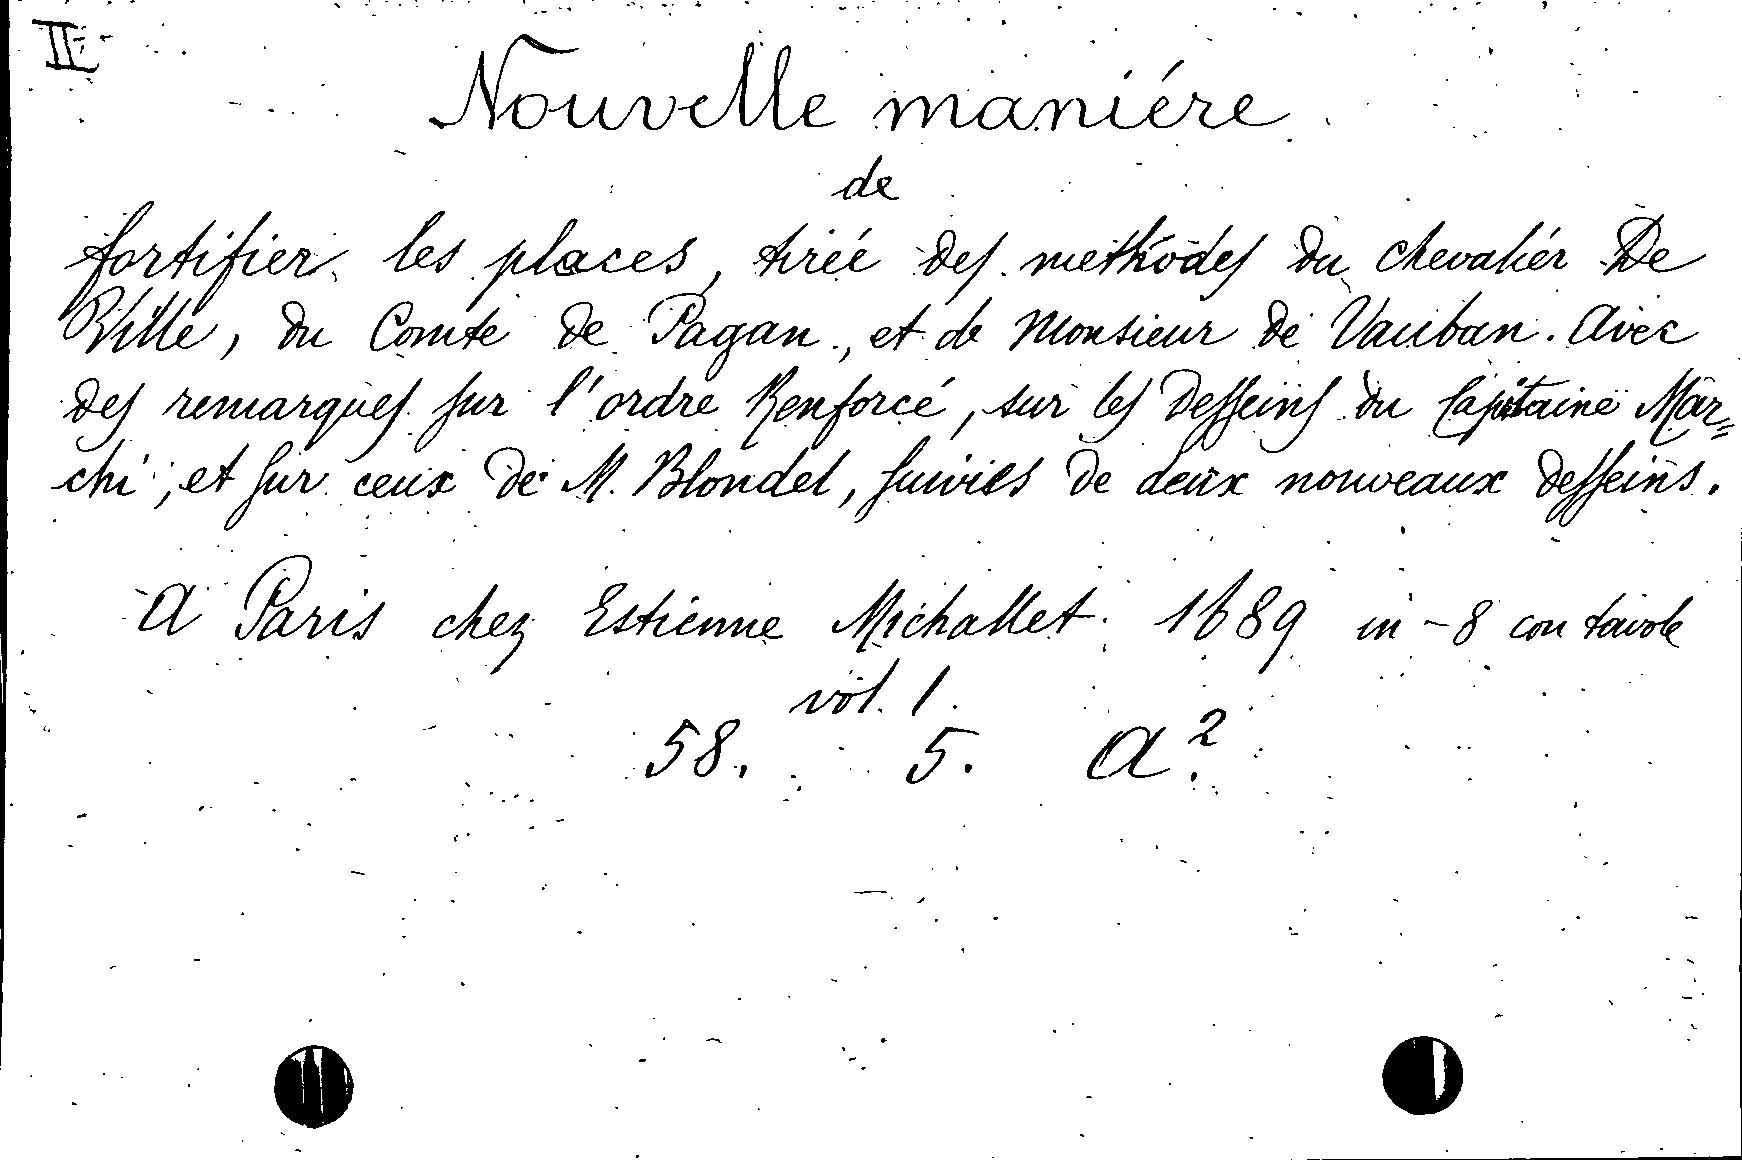 II
Nouvelle maniére
de
fortifier les places, tirée des methodes du chevalier De
Ville, du Comte de Pagan, et de Monsieur de Vauban. Avec
des remarques sur l'ordre Renforcé, sur les Desseins du Capitaine Mar=
chi, et sur ceux de M. Blondel, suivies de deux nouveaux desseins.
A Paris chez Estienne Michallet. 1689 in-8 con tavole
vol. 1.
58. 5. A².